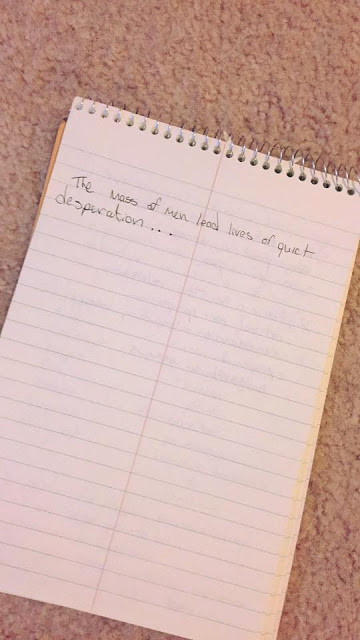 The mass of men lead lives of quiet
desperation...